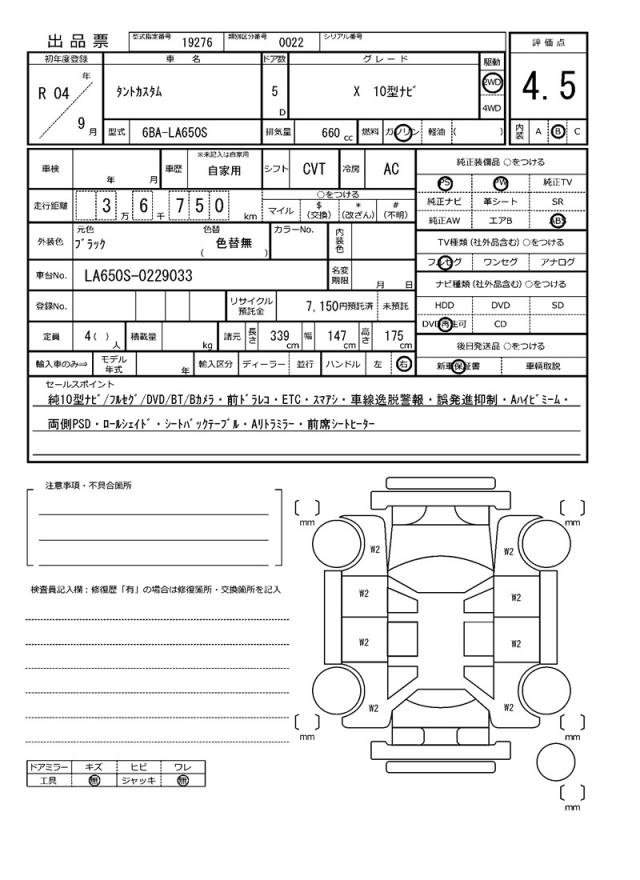 出品票 型式指定番号 19276 類別区分番号 0022 シリアル番号
初年度登録 車名 ドア数 グレード 駆動 評価点
R 04 年 9 月 タントカスタム 5 D X 10型ナビ 2WD 4WD 4.5
型式 6BA-LA650S 排気量 660 cc 燃料 ガソリン 軽油 ( ) 内装 A B C
車検 年 月 車歴 ※未記入は自家用 自家用 シフト CVT 冷房 AC 純正装備品 ○をつける
PS PW 純正TV
走行距離 3 万 6 千 7 5 0 km ○をつける マイル $(交換) *(改ざん) #(不明) 純正ナビ 革シート SR
純正AW エアB ABS
外装色 元色 ブラック 色替 ( 色替無 ) カラーNo. 内装色 TV種類 (社外品含む) ○をつける
フルセグ ワンセグ アナログ
車台No. LA650S-0229033 名変期限 月 日 ナビ種類 (社外品含む) ○をつける
登録No. リサイクル預託金 7,150円預託済 未預託 HDD DVD SD
DVD再生可 CD
定員 4( ) 人 積載量 kg 諸元 長さ 339 cm 幅 147 cm 高さ 175 cm 後日発送品 ○をつける
輸入車のみ⇒ モデル年式 年 輸入区分 ディーラー 並行 ハンドル 左 右 新車保証書 車輌取説
セールスポイント
純10型ナビ/フルセグ/DVD/BT/Bカメラ・前ドラレコ・ETC・スマアシ・車線逸脱警報・誤発進抑制・Aハイビーム・
両側PSD・ロールシェイド・シートバックテーブル・Aリトラミラー・前席シートヒーター
注意事項・不具合箇所
mm mm
W2 W2
検査員記入欄：修復歴「有」の場合は修復箇所・交換箇所を記入
W2 W2
W2 W2
W2 W2
mm mm
ドアミラー キズ ヒビ ワレ
工具 無 ジャッキ 無
mm